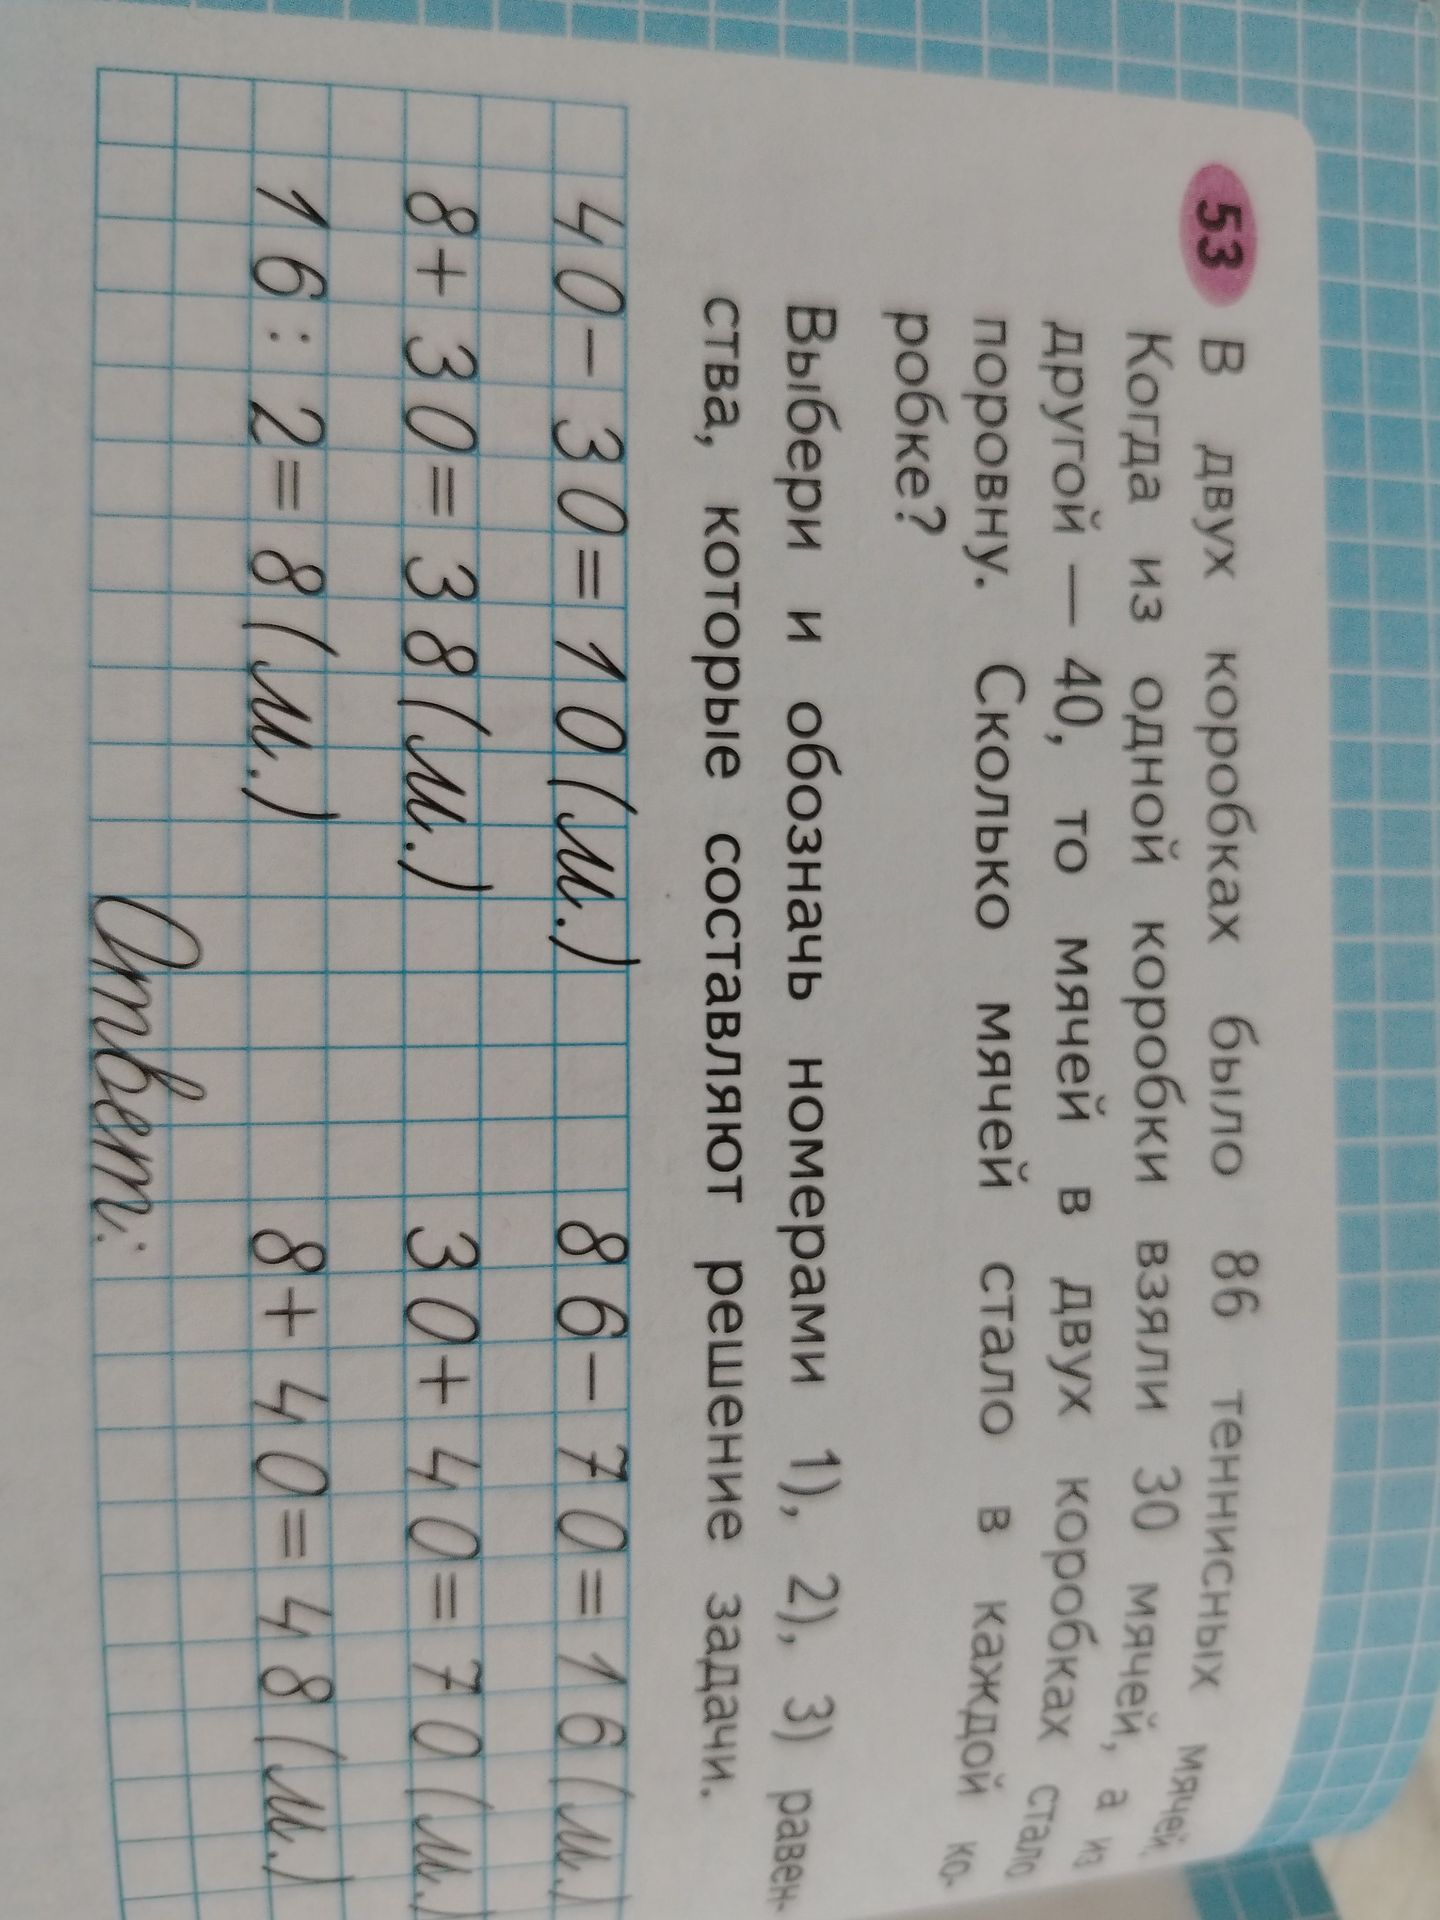 53 В двух коробках было 86 теннисных мячей.
Когда из одной коробки взяли 30 мячей, а из
другой — 40, то мячей в двух коробках стало
поровну. Сколько мячей стало в каждой ко-
робке?
Выбери и обозначь номерами 1), 2), 3) равен-
ства, которые составляют решение задачи.
40-30=10(м.) 86-70=16(м.)
8+30=38(м.) 30+40=70(м.)
16:2=8(м.) 8+40=48(м.)
Ответ: